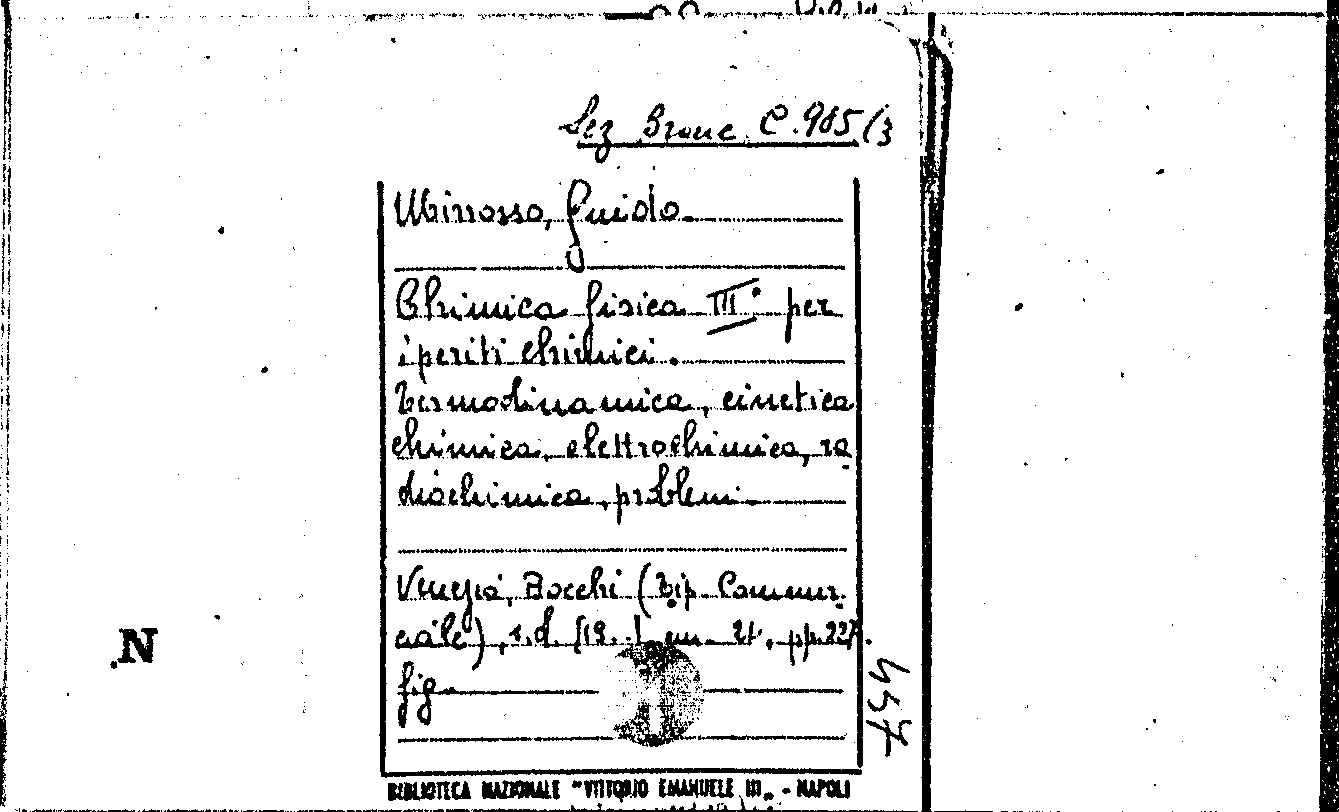 Sez Branc. C. 985 (3
Minosso, Guido.
Chimica fisica III° per
i periti chimici.
Termodinamica, cinetica
chimica, elettrochimica, ra
diochimica, problemi.
Venezia, Bocchi (Tip. Commer
ciale), s.d. [19..] cm. 21, pp. 227.
fig
457
N
BIBLIOTECA NAZIONALE "VITTORIO EMANUELE III„ - NAPOLI